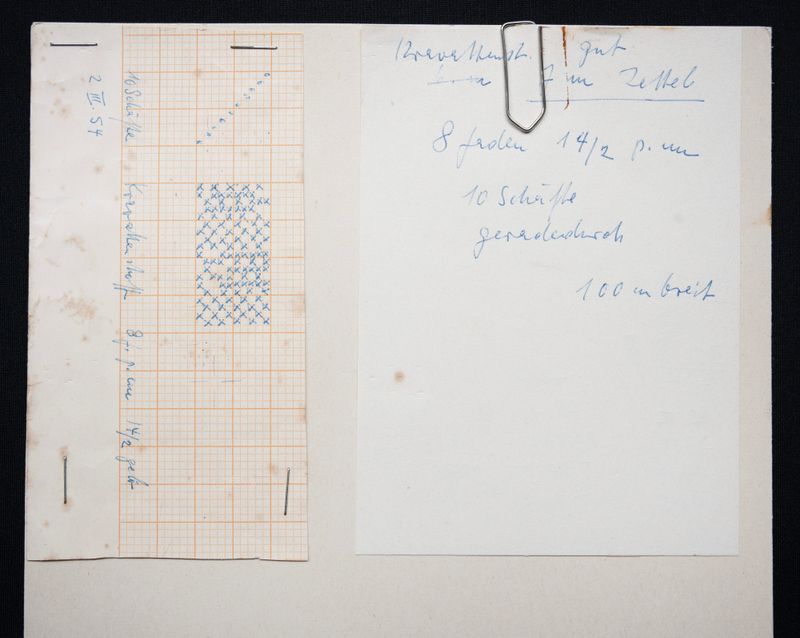 2 III. 54
10 Schäfte Kravattenstoff 8 f. p. cm 14/2 gelb
Kravattenst. gut
7 m Zettel
8 faden 14/2 p. cm
10 Schäfte
geradedurch
100 cm breit